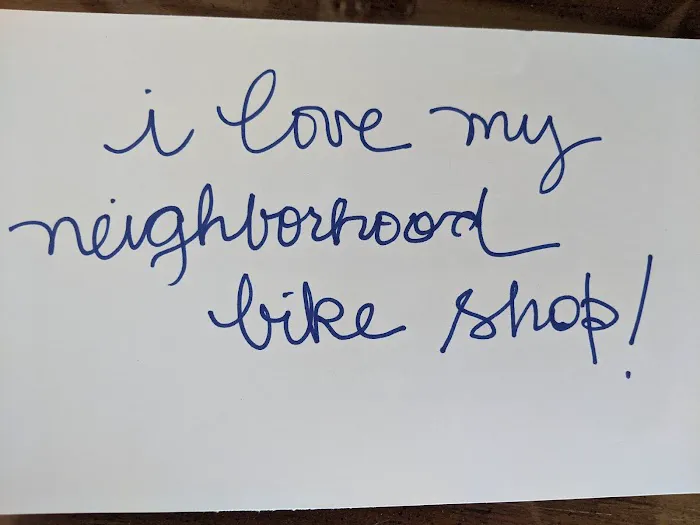 i love my
neighborhood
bike shop!